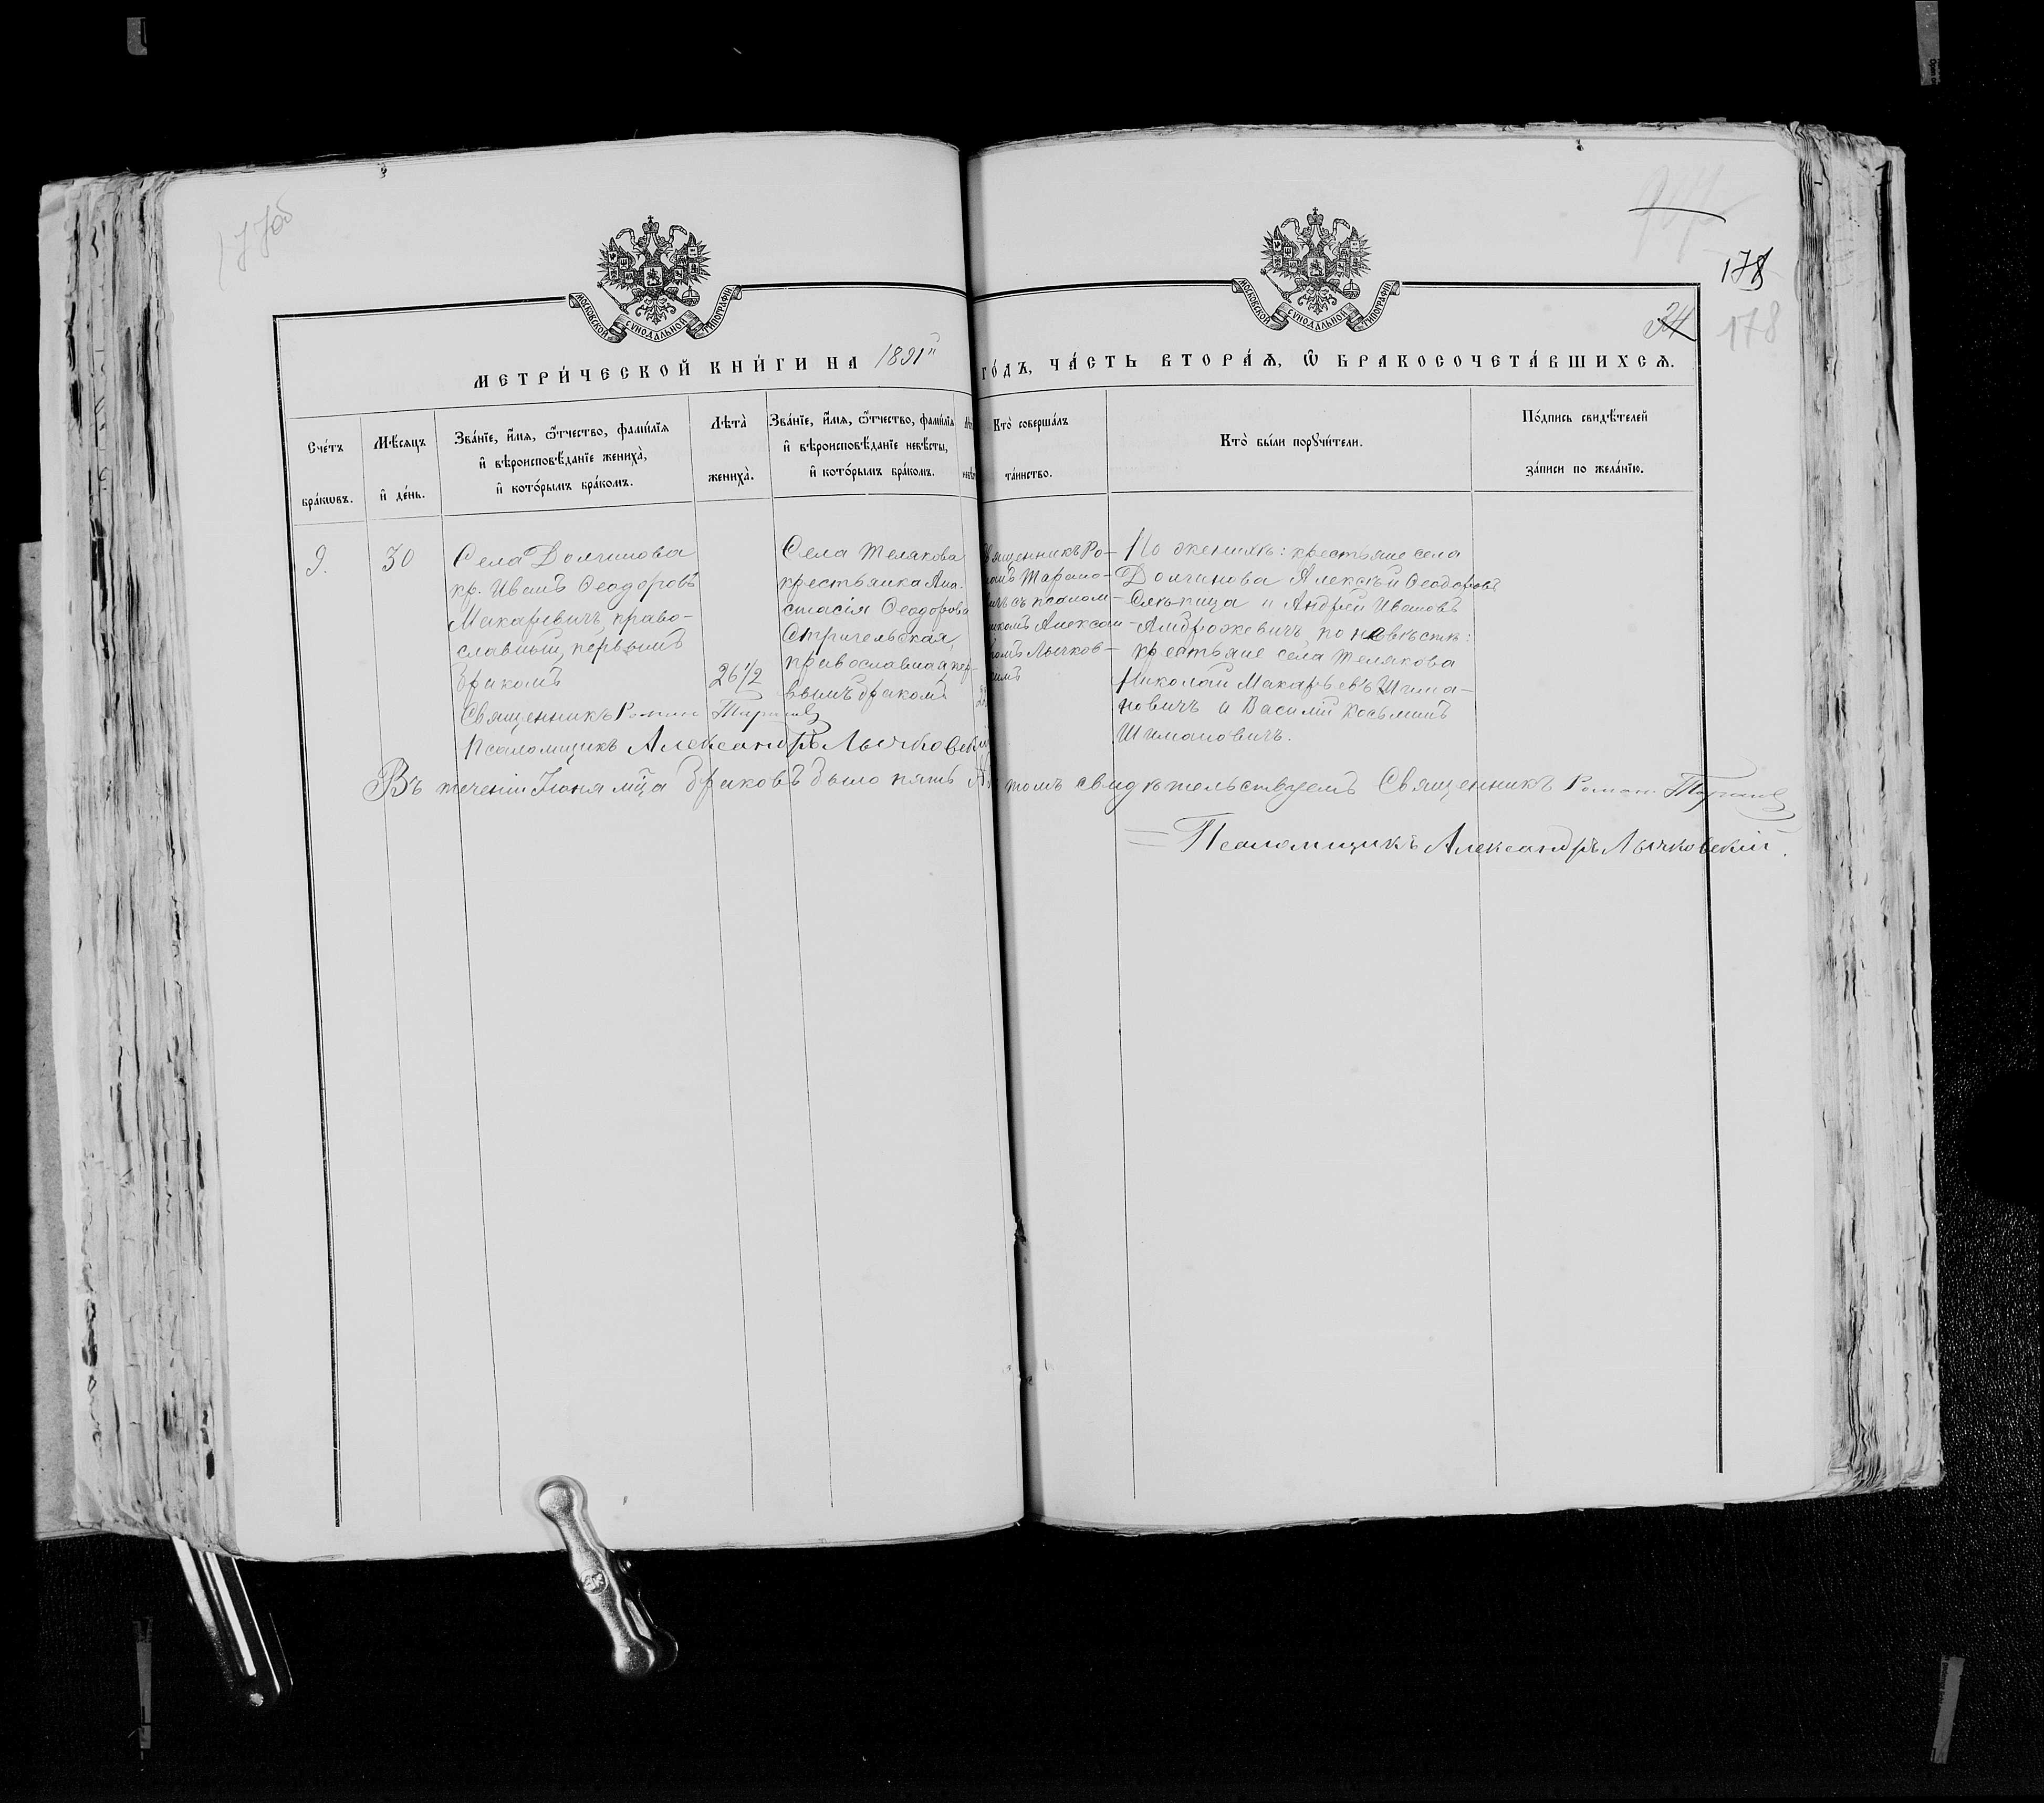 177об
178
34
178
МОСКОВСКОЙ СУНОДАЛЬНОЙ ТИПОГРАФІИ
МОСКОВСКОЙ СУНОДАЛЬНОЙ ТИПОГРАФІИ
МЕТРИ́ЧЕСКОЙ КНИ́ГИ НА 1891й ГО́ДЪ, ЧА́СТЬ ВТОРА́Ѧ, Ѡ҆ БРАКОСОЧЕТА́ВШИХСѦ.
Сче́тъ
бра́кѡвъ.
Мѣ́сѧцъ
и҆ де́нь.
Зва́нїе, и҆́мѧ, ѻ҆́тчество, фами́лїѧ
и҆ вѣроисповѣ́данїе жениха̀,
и҆ кото́рымъ бра́комъ.
Лѣта̀
жениха̀.
Зва́нїе, и҆́мѧ, ѻ҆́тчество, фами́лїѧ
и҆ вѣроисповѣ́данїе невѣ́сты,
и҆ кото́рымъ бра́комъ.
Кто̀ соверша́лъ
та́инство.
Кто̀ бы́ли порꙋчи́тели.
По́дпись свидѣ́телей
за́писи по жела́нїю.
9.
30
Села Долчинова
кр. Иванъ Ѳеодоровъ
Макаревичъ, право-
славный, первымъ
бракомъ
26 1/2
Села Телякова
крестьянка Ана-
стасія Ѳеодорова
Стригельская,
православная, пер-
вымъ бракомъ
Священникъ Ро-
манъ Тарано-
вичъ съ псалом-
щикомъ Алексан-
дромъ Лычков-
скимъ
По женихѣ: крестьяне села
Долчинова Алексѣй Ѳеодоровъ
и Андрей Ивановъ
Амброжевичъ, по невѣстѣ:
крестьяне села Телякова
Николай Макарьевъ Шима-
новичъ и Василій Косьминъ
Шимановичъ.
Священникъ Роман
Псаломщикъ Александръ Лычковскій
Въ теченіи Іюня мца браковъ было пять А въ томъ свидѣтельствуемъ Священникъ Роман
Псаломщикъ Александръ Лычковскій.